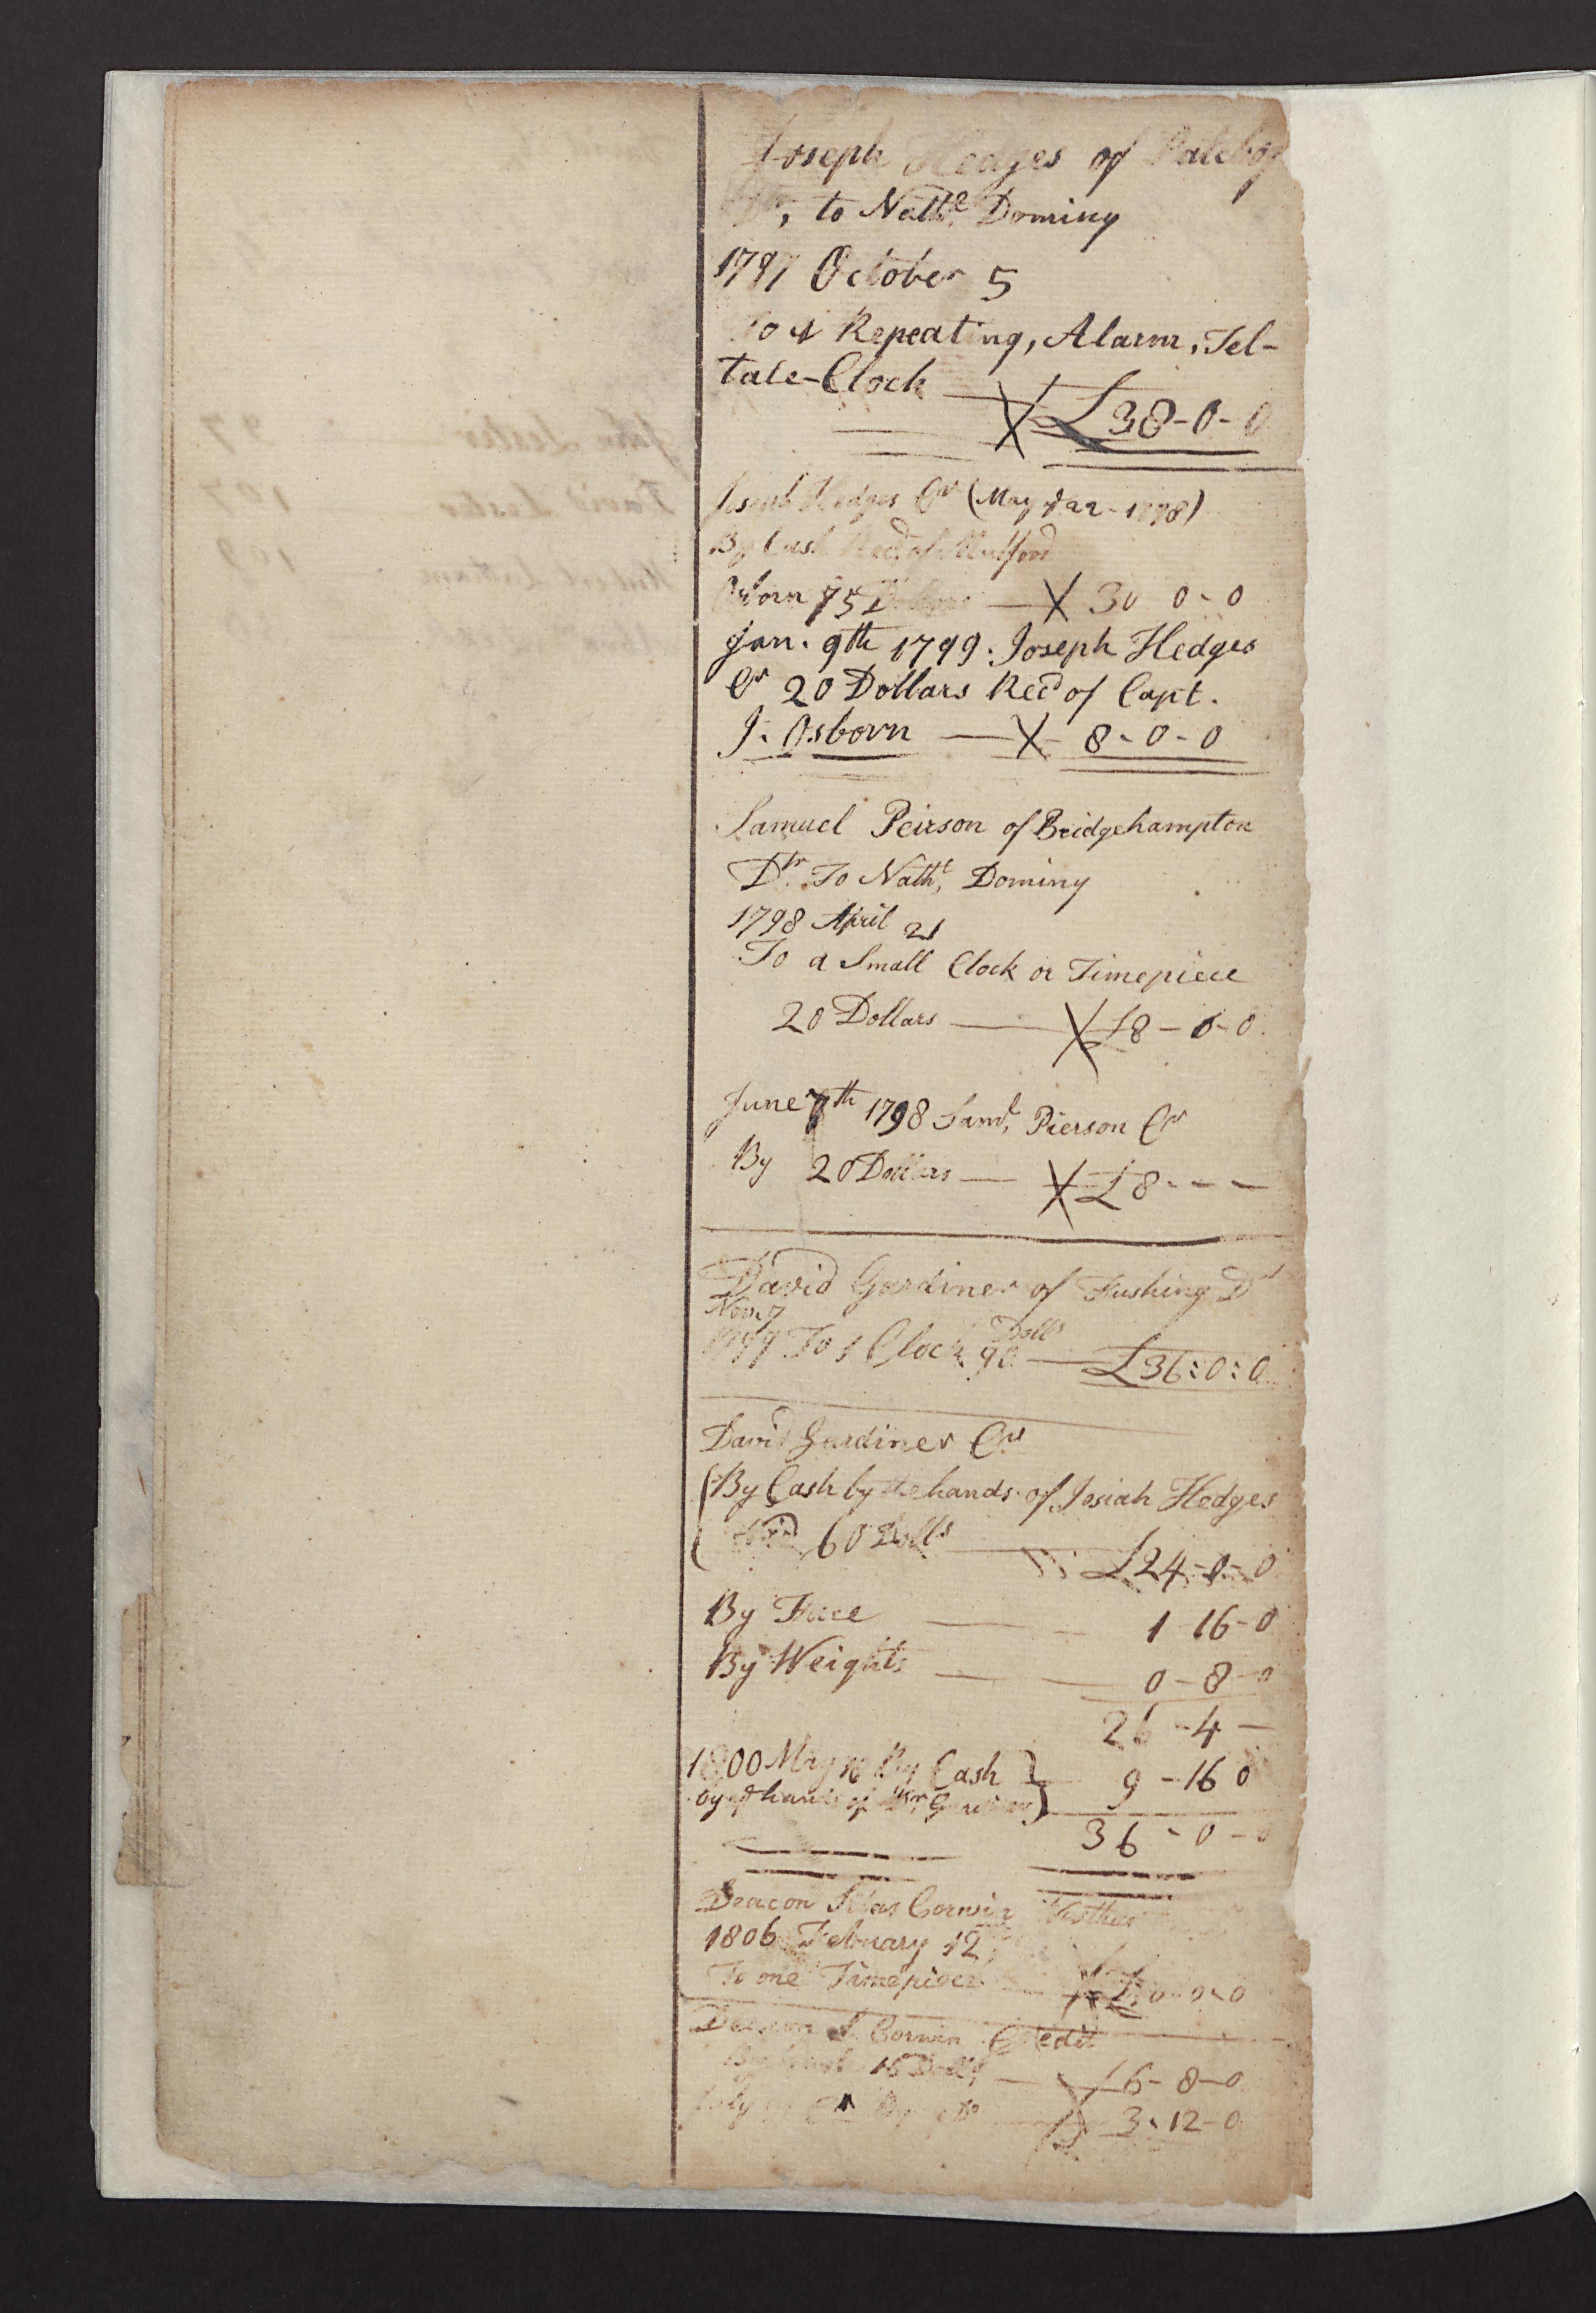 Joseph Hedges of
Dr, to Nathl Dominy
1797 October 5
To 1 Repeating, Alarm, Tel-
tale-Clock — £38-0-0
Joseph Hedges Cr (May 22-1798)
By Cash Recd of Mulford
Osborn 75 Dollars — X 30 0-0
Jan. 9th 1799. Joseph Hedges
Cr 20 Dollars Recd of Capt.
J. Osborn — X 8-0-0
Samuel Peirson of Bridgehampton
Dr. To Nathl, Dominy
1798 April 21
To a Small Clock or Timepiece
20 Dollars — X £8-0-0
June 7th 1798 Saml, Pierson Cr
By 20 Dollars — X £8---
David Gardiner of Flushing Dr
Nov. 7
1799 To 1 Clock 90 Dolls — £36:0:0
David Gardiner Cr
(By Cash by the hands of Josiah Hedges
60 Dolls — £24-0-0
By Face — 1 16-0
By Weights — 0-8-0
26-4-
1800 May By Cash } 9-16 0
by ye hands of Gardiner }
36-0-0
Deacon Silas Corwin
1806 Febuary 12
To one Timepiece — X £10-0-0
Deacon S. Corwin Credit
By Cash 16 Dolls — X £6-8-0
July By Do — X 3-12-0
John Lester 97
David Lester 107
109